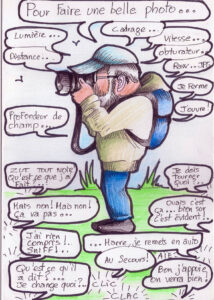 Pour faire une belle photo...
Cadrage...
Lumière...
Vitesse...
obturateur.
Distance..
Raw..JPF
Je Ferme
J'ouvre
Profondeur
de champ...
ZUT TOUT NOIR
Qu'est ce que j'a
Fait
Je dois
tourner
quoi?
Mais non! Mais non!
Ça va pas...
Quais c'est
ça.... bien sur
C'est évident!
J'ai rien
compris!
SNIFF!
...Haere, je remets en auto
AIE
Au secours!
Qu'est ce qu'il
a dit?...
Je change quoi?
Ben j'appuie
on verra bien!
CLIC
CLAC